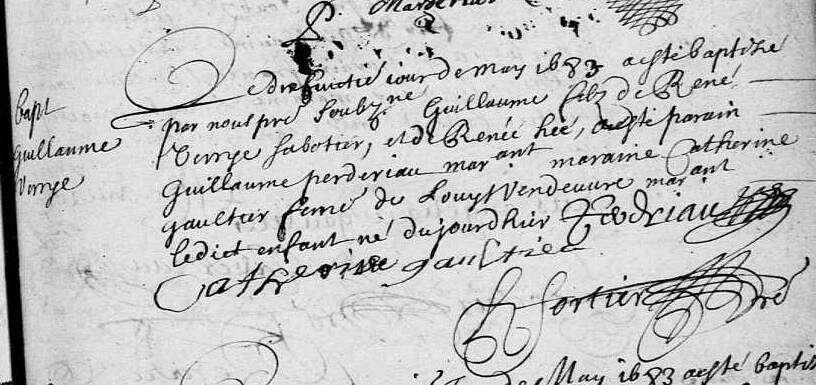 Bapt
Guillaume
Verrye
Le dixhuictie jour de May 1683 a esté baptizé
par nous pre soubz.ne Guillaume filz de René
Verrye sabotier, et de Renée hée, a esté parain
Guillaume perderiau marant maraine Catherine
gaultier feme de Louys Vendeuure marant
ledict enfant né dujourdhier Perdriau
Catherine gaultier
Fortier pre
May 1683 a esté baptis